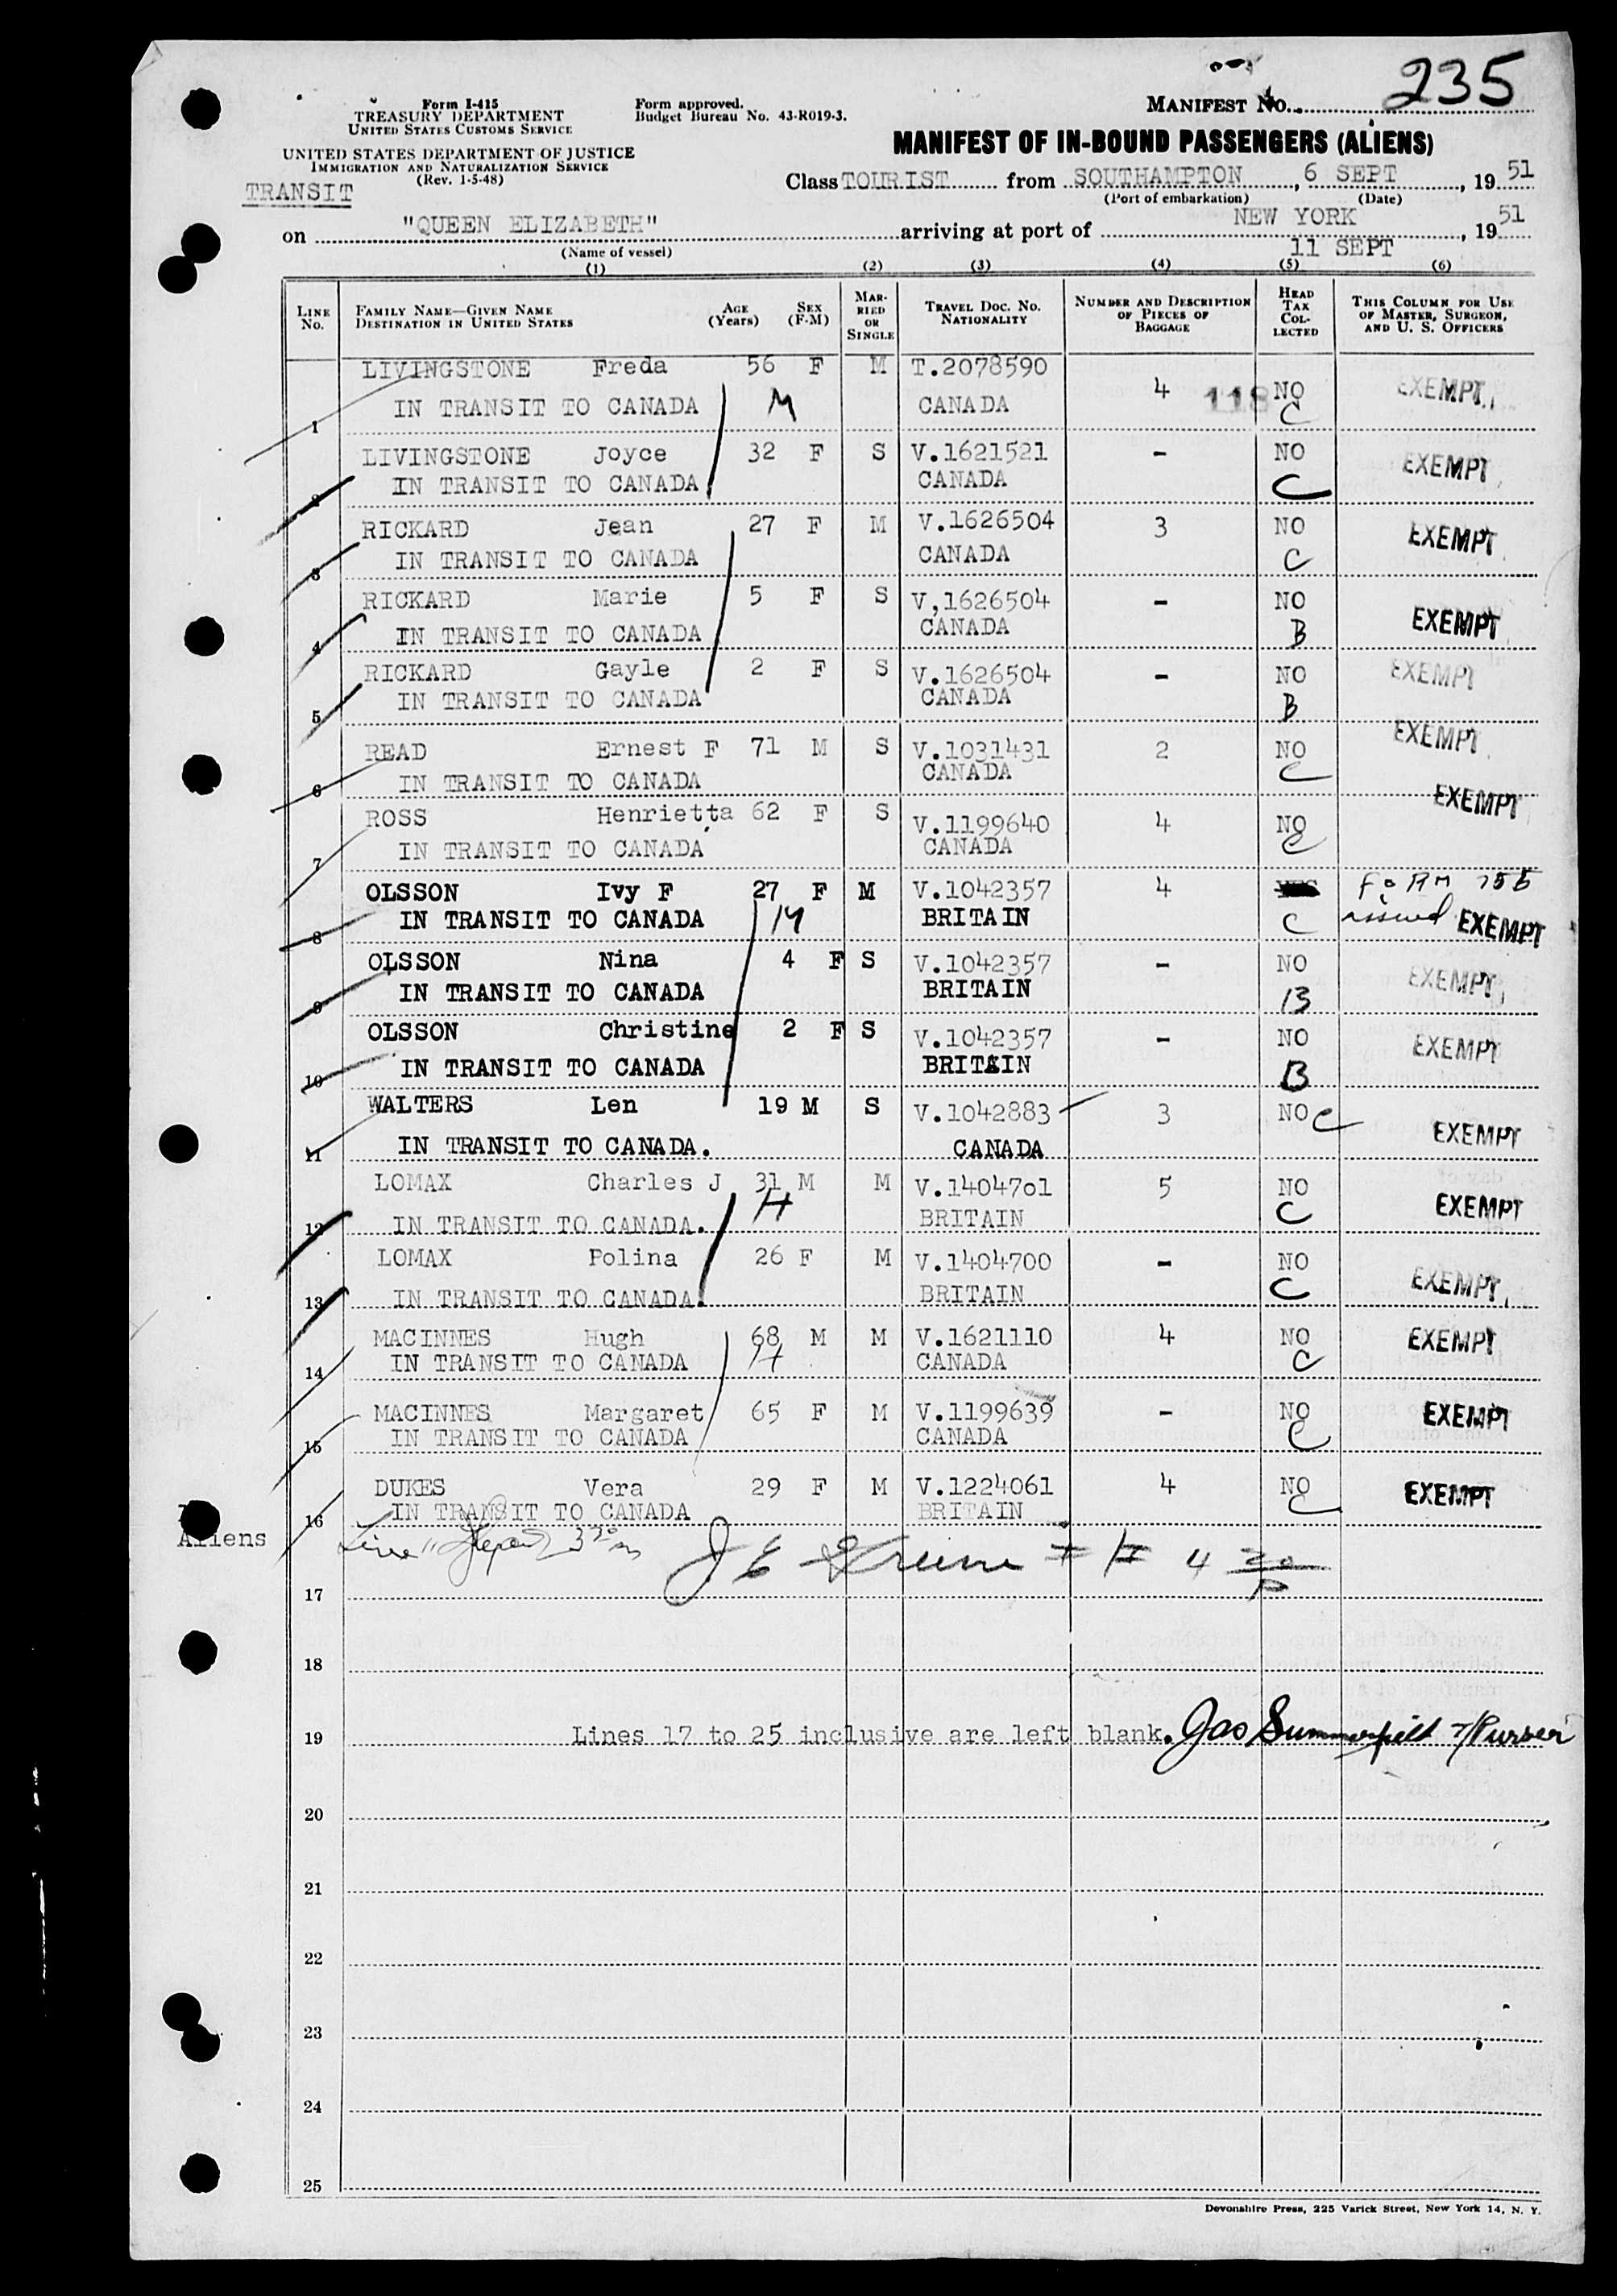 235
Form I-415
TREASURY DEPARTMENT
UNITED STATES CUSTOMS SERVICE
Form approved.
Budget Bureau No. 43-R019-3.
MANIFEST NO.
UNITED STATES DEPARTMENT OF JUSTICE
IMMIGRATION AND NATURALIZATION SERVICE
(Rev. 1-5-48)
TRANSIT
MANIFEST OF IN-BOUND PASSENGERS (ALIENS)
Class TOURIST from SOUTHAMPTON, 6 SEPT, 19 51
(Port of embarkation) (Date)
on "QUEEN ELIZABETH" arriving at port of NEW YORK 11 SEPT, 19 51
(Name of vessel)
(1) (2) (3) (4) (5) (6)
LINE NO. FAMILY NAME—GIVEN NAME DESTINATION IN UNITED STATES AGE (Years) SEX (F-M) MARRIED OR SINGLE TRAVEL DOC. NO. NATIONALITY NUMBER AND DESCRIPTION OF PIECES OF BAGGAGE HEAD TAX COLLECTED THIS COLUMN FOR USE OF MASTER, SURGEON, AND U. S. OFFICERS
LIVINGSTONE Freda 56 F M T.2078590 4 118 NO EXEMPT
1 IN TRANSIT TO CANADA M CANADA C
LIVINGSTONE Joyce 32 F S V.1621521 - NO EXEMPT
2 IN TRANSIT TO CANADA CANADA C
RICKARD Jean 27 F M V.1626504 3 NO EXEMPT
3 IN TRANSIT TO CANADA CANADA C
RICKARD Marie 5 F S V,1626504 - NO EXEMPT
4 IN TRANSIT TO CANADA CANADA B
RICKARD Gayle 2 F S V.1626504 - NO EXEMPT
5 IN TRANSIT TO CANADA CANADA B
READ Ernest F 71 M S V.1031431 2 NO EXEMPT
6 IN TRANSIT TO CANADA CANADA C
ROSS Henrietta 62 F S V.1199640 4 NO EXEMPT
7 IN TRANSIT TO CANADA CANADA C
OLSSON Ivy F 27 F M V.1042357 4 FORM 755
8 IN TRANSIT TO CANADA M BRITAIN C issued EXEMPT
OLSSON Nina 4 F S V.1042357 - NO EXEMPT
9 IN TRANSIT TO CANADA BRITAIN B
OLSSON Christine 2 F S V.1042357 - NO EXEMPT
10 IN TRANSIT TO CANADA BRITAIN B
WALTERS Len 19 M S V.1042883 3 NO C EXEMPT
11 IN TRANSIT TO CANADA. CANADA
LOMAX Charles J 31 M M V.1404701 5 NO EXEMPT
12 IN TRANSIT TO CANADA. H BRITAIN C
LOMAX Polina 26 F M V.1404700 - NO EXEMPT
13 IN TRANSIT TO CANADA. BRITAIN C
MACINNES Hugh 68 M M V.1621110 4 NO EXEMPT
14 IN TRANSIT TO CANADA H CANADA C
MACINNES Margaret 65 F M V.1199639 - NO EXEMPT
15 IN TRANSIT TO CANADA CANADA C
DUKES Vera 29 F M V.1224061 4 NO EXEMPT
16 IN TRANSIT TO CANADA BRITAIN C
Aliens
17
18
19 Lines 17 to 25 inclusive are left blank. Jas Summerfield T/Purser
20
21
22
23
24
25
Devonshire Press, 225 Varick Street, New York 14, N. Y.